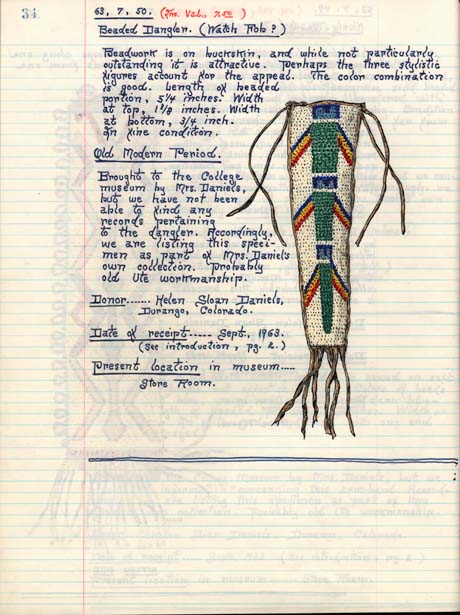 34
63. 7. 50. (Ins. Val., 7.50)
Beaded Dangler. (Watch Fob?)
Beadwork is on buckskin, and while not particularly
outstanding it is attractive. Perhaps the three stylistic
figures account for the appeal. The color combination
is good. Length of beaded
portion, 5 1/4 inches. Width
at top, 1 7/8 inches. Width
at bottom, 3/4 inch.
In fine condition.
Old Modern Period.
Brought to the College
museum by Mrs. Daniels,
but we have not been
able to find any
records pertaining
to the dangler. Accordingly,
we are listing this speci-
men as part of Mrs. Daniels
own collection. Probably
old Ute workmanship.
Donor....... Helen Sloan Daniels,
Durango, Colorado.
Date of receipt----- Sept., 1963.
(See introduction, pg. 2.)
Present location in museum.....
Store Room.